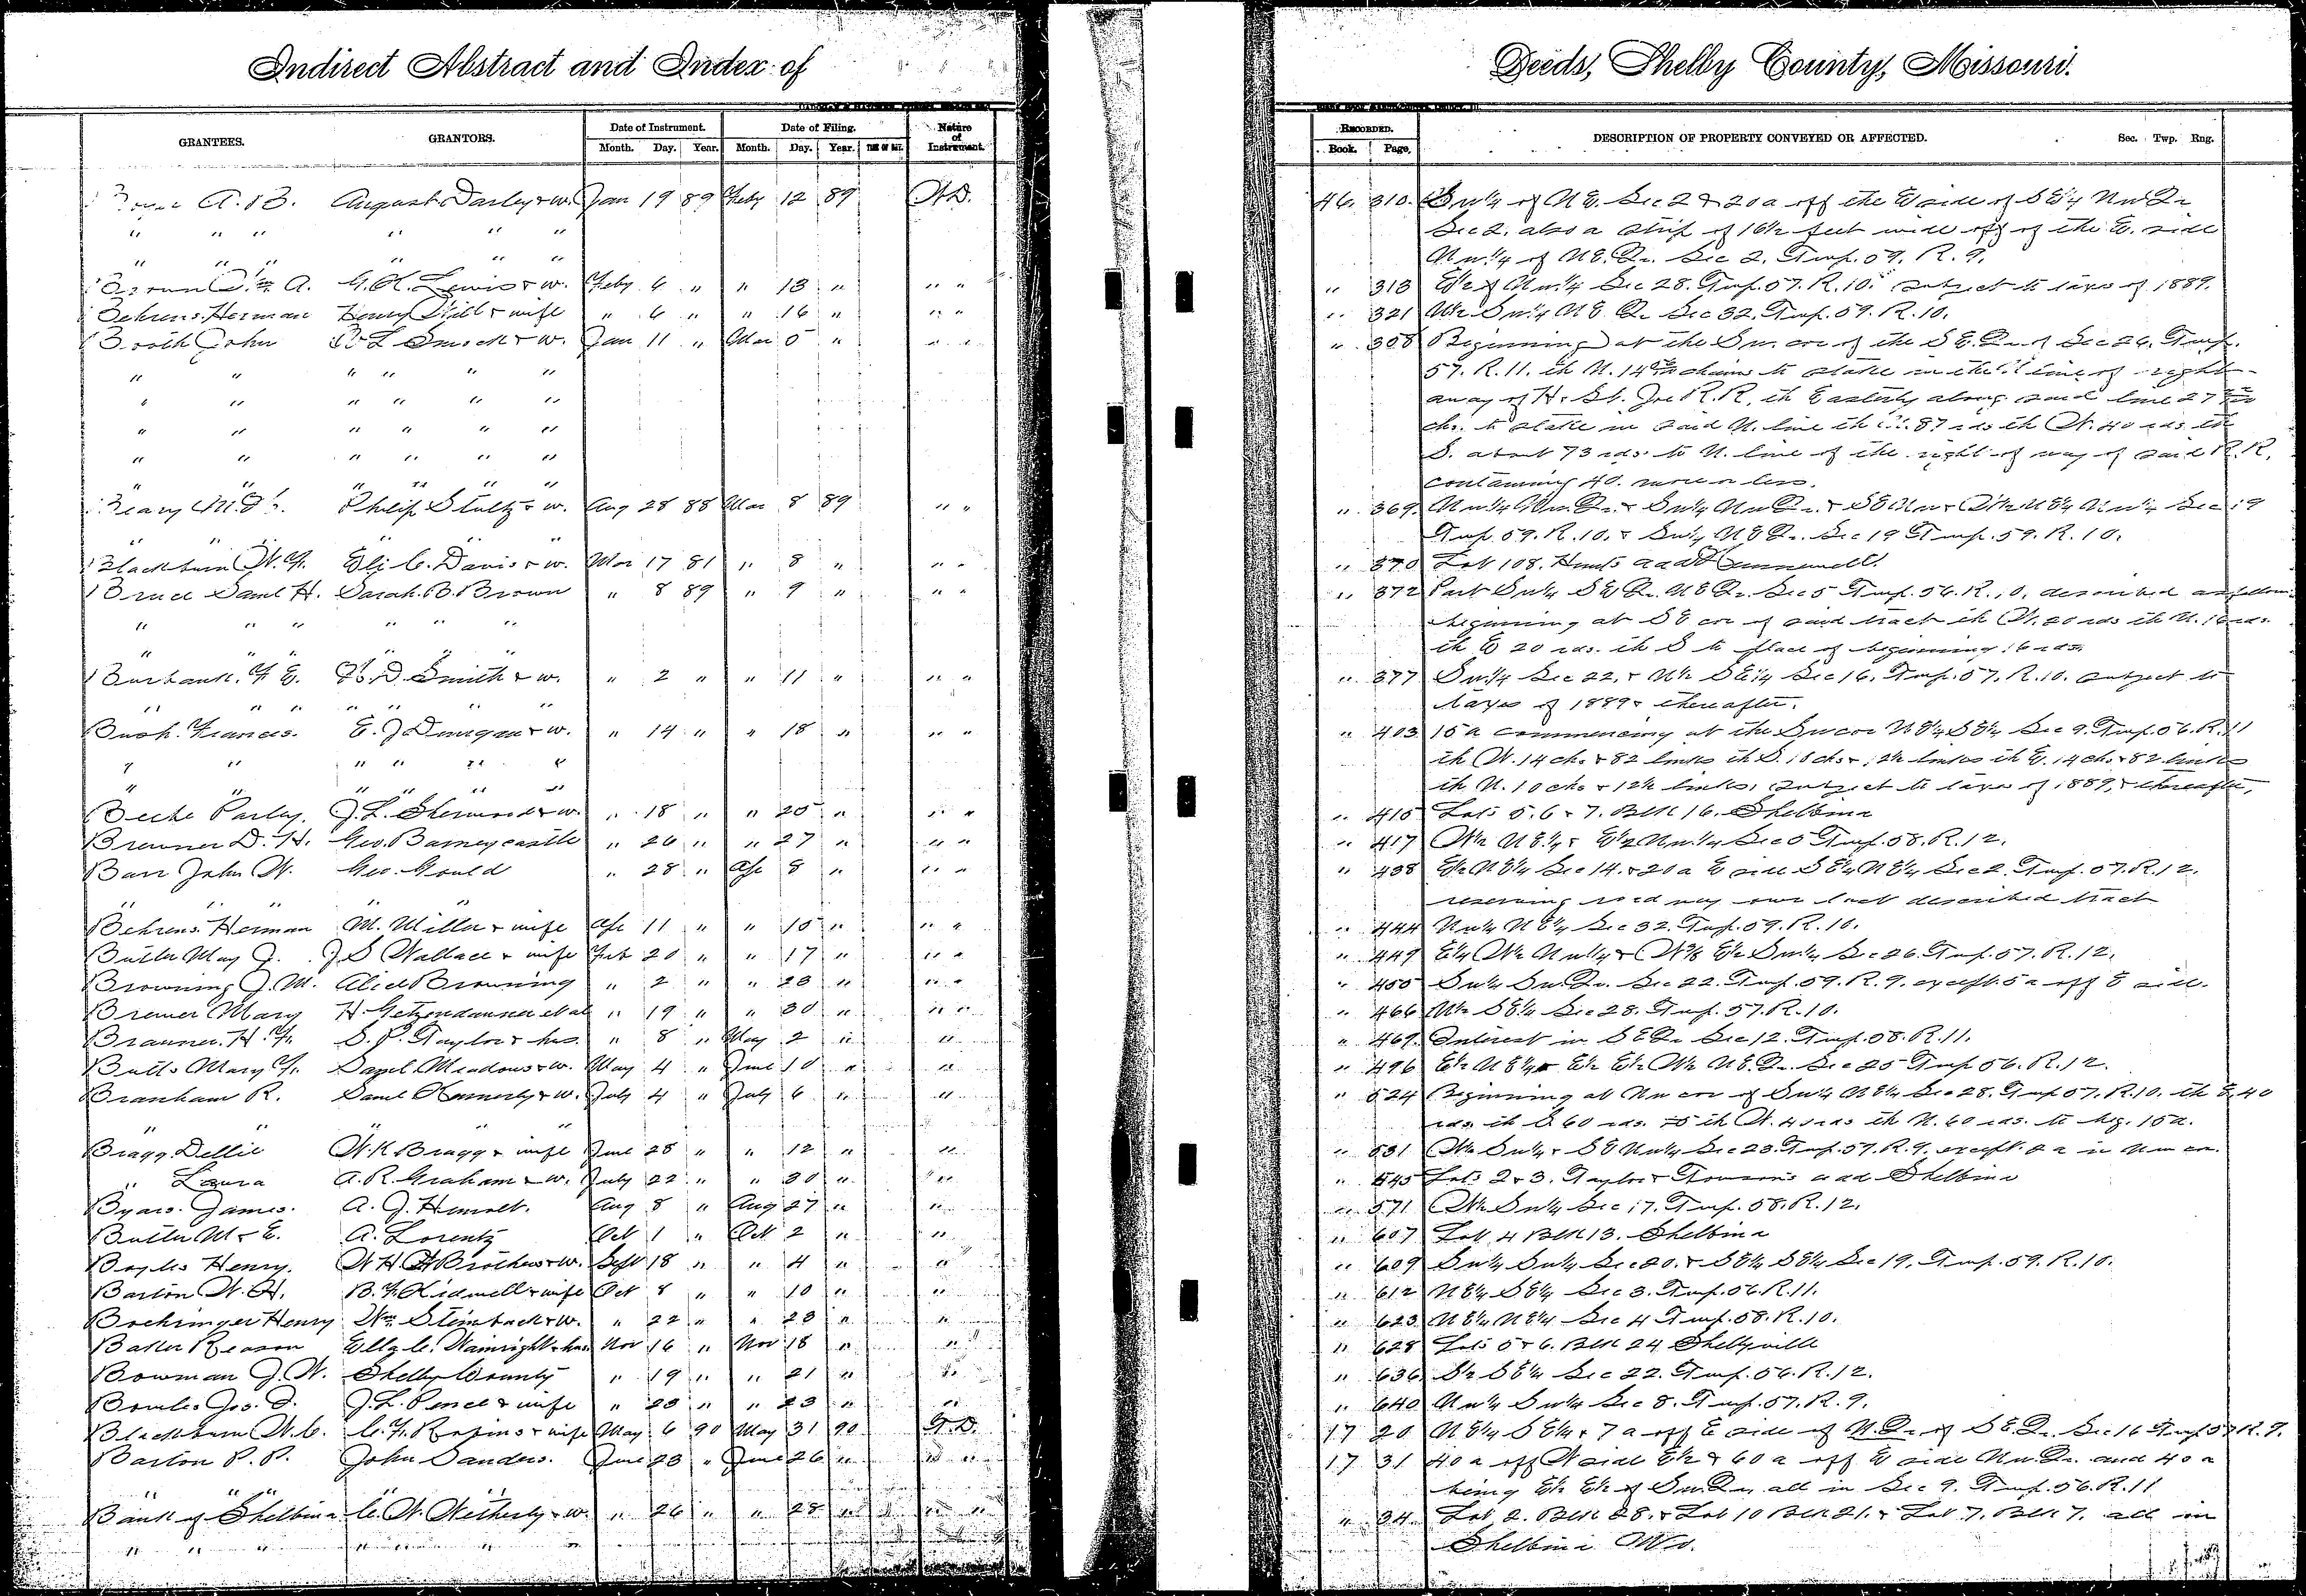 Indirect Abstract and Index of
Deeds, Shelby County, Missouri.
GRANTEES. GRANTORS. Date of Instrument. Month. Day. Year. Date of Filing. Month. Day. Year. Nature of Instrument.
RECORDED. Book. Page. DESCRIPTION OF PROPERTY CONVEYED OR AFFECTED. Sec. Twp. Rng.
A. B. August Darley & w. Jan 19 89 Feby 12 89 W.D. 46. 310. Sw¼ of N E. Sec 2 & 20a off the E side of S E¼ Nw Qr
" " " " " " Sec 2. also a strip of 16½ feet wide off of the E. side
" " " " " " Nw.¼ of N E. Qr. Sec 2. Twp. 59. R. 9.
Brown Wm A. G. H. Lewis & w. Feby 6 " " 13 " " " " 313 E½ of Nw.¼ Sec 28. Twp. 57. R. 10. subject to taxes of 1889.
Behrens Herman Henry Will & wife " 6 " " 16 " " " " 321 W½ Sw¼ N E Qr Sec 32. Twp. 59. R. 10.
Booth John L Smock & w. Jan 11 " Mar 5 " " " " 358 Beginning at the Sw. cor of the S E. Qr of Sec 26. Twp.
" " " " " " 57. R. 11. th N. 14 chains to stake in the line of right
" " " " " " away of H. & St. Joe R. R. th Easterly along said line 27
" " " " " " chs. to stake in said N. line th N. 87 rds th W. 40 rds th
" " " " " " S. about 73 rds. to N. line of the right of way of said R. R.
" " " " " " containing 40. more or less.
Philip Stultz & w. Aug 28 88 Mar 8 89 " " " 369. Nw¼ Nw Qr. & Sw¼ Nw Qr. & S E Nw & W½ N E¼ Nw¼ Sec 19
" " " " Twp. 59. R. 10. & Sw¼ N E Qr. Sec 19 Twp. 59. R. 10.
Blackburn W. F. Eli C. Davis & w. Mar 17 81 " 8 " " " " 370 Lot 108. Hunts add Hunnewell.
Bruce Saml H. Sarah B. Brown " 8 89 " 9 " " " " 372 Part Sw¼ S E Qr. N E Qr. Sec 5 Twp. 56. R. 10. described as follows
" " " " " " beginning at S E cor of said tract th W. 20 rds th N. 16 rds.
" " " " " " th E 20 rds. th S to place of beginning 16 rds.
Burbank. F. E. H. D. Smith & w. " 2 " " 11 " " " " 377 Sw.¼ Sec 22. & N½ S E ¼ Sec 16. Twp. 57. R. 10. subject to
" " " " " " taxes of 1889 & thereafter.
Bush. Frances. E. J. Dungan & w. " 14 " " 18 " " " " 403 15 a commencing at the Sw cor N E¼ S E¼ Sec 9. Twp. 56. R. 11
" " " " " " th W. 14 chs & 82 links th S. 10 chs & 12½ links th E. 14 chs & 82 links
" " " " " th N. 10 chs & 12½ links, subject to taxes of 1889, & thereafter,
Beebe Parley. J. L. Sherwood & w. " 18 " " 20 " " " " 415 Lots 5. 6 & 7. Blk 16. Shelbina
Brenner D. H. Geo. Barneycastle " 26 " " 27 " " " " 417 W½ N E.¼ & E½ Nw.¼ Sec 5 Twp. 58. R. 12.
Barr John W. Geo. Gould " 28 " Apr 8 " " " " 438 E½ N E¼ Sec 14. & 20 a E side S E¼ N E¼ Sec 2. Twp. 57. R. 12.
" " " " reserving road way over last described tract
Behrens Herman M. Miller & wife Apr 11 " " 15 " " " " 444 Nw¼ N E¼ Sec 32. Twp. 59. R. 10.
Butler May J. J. S Wallace & wife Feb 20 " " 17 " " " " 449 E¼ W½ Nw¼ & W⅜ E½ Sw¼ Sec 26. Twp. 57. R. 12.
Browning J. M. Alice Browning " 2 " " 23 " " " " 455 Sw¼ Sw. Qr. Sec 22. Twp. 59. R. 9. except 5 a off E side.
Bremer Mary H. Getzendanner et al " 19 " " 30 " " " " 466 W½ S E¼ Sec 28. Twp. 57. R. 10.
Branner. H. F. S. P. Taylor & hus. " 8 " May 2 " " " 469. Interest in S E Qr Sec 12. Twp. 58. R. 11.
Butts Mary F. Saml. Meadows & w. May 4 " June 10 " " " 496 E½ N E¼ & E½ E½ W½ N E. Qr. Sec 25 Twp 56. R. 12.
Branham R. Saml Kennerly & w. July 4 " July 6 " " " 524 Beginning at Nw cor of Sw¼ N E¼ Sec 28. Twp 57. R. 10. th E 40
" " " rds th S 60 rds. th W. 40 rds th N. 60 rds. to beg. 15 a.
Bragg Dellie W. K Bragg & wife June 25 " " 12 " " " 531 W½ Sw¼ & S E Nw¼ Sec 23. Twp. 59. R. 9. except 2 a in Nw cor.
" Laura A. R. Graham & w. July 22 " " 30 " " " 545 Lots 2 & 3. Taylor & Towsons add Shelbina
Byars. James. A. J. Hewitt. Aug 8 " Aug 27 " " " 571 W½ Sw¼ Sec 17. Twp. 58. R. 12.
Butler M. E. A. Lorentz Oct 1 " Oct 2 " " " 607 Lot 4 Blk 13. Shelbina
Bayles Henry. W. H. H. Brothers & w. Sept 18 " " 4 " " " 609 Sw¼ Sw¼ Sec 20. & S E¼ S E¼ Sec 19. Twp. 59. R. 10.
Barton W. H. B. F. Kidwell & wife Oct 8 " " 10 " " " 612 N E¼ S E¼ Sec 3. Twp. 56. R. 11.
Bochringer Henry Wm Steinbach & w. " 22 " " 23 " " " 623 N E¼ N E¼ Sec 4 Twp. 58. R. 10.
Baker Reason Ella C. Wainright & hus Nov 16 " Nov 18 " " " 628 Lots 5 & 6. Blk 24 Shelbyville
Bowman J. W. Shelby County " 19 " " 21 " " " 636 S½ S E¼ Sec 22. Twp. 56. R. 12.
Bowles Jos. D. J. L. Pence & wife " 23 " " 23 " " " 640 Nw¼ Sw¼ Sec 8. Twp. 57. R. 9.
Blackburn W. C. C. F. Robins & wife May 6 90 May 31 90 T. D. 17 20 N E¼ S E¼ & 7 a off E side of N. Qr of S E. Qr. Sec 16 Twp 57 R. 9.
Barton P. P. John Sanders. June 23 " June 26 " " " 17 31 40 a off W side E½ & 60 a off E side Nw. Qr. and 40 a
" " " being E½ E½ of Sw. Qr all in Sec 9. Twp. 56. R. 11
Bank of Shelbina C. W. Wetherby & w. " 26 " " 28 " " " " 34. Lot 2. Blk 28. & Lot 10 Blk 21. & Lot 7. Blk 7. all in
" " " " " " Shelbina Mo.